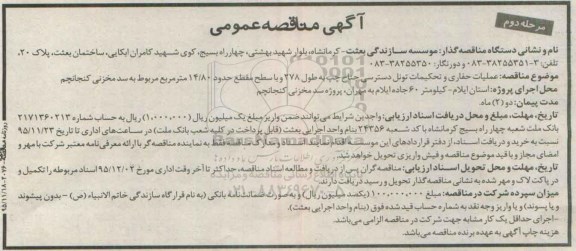 مرحله دوم
آگهی مناقصه عمومی
نام و نشانی دستگاه مناقصه گذار: موسسه سازندگی بعثت - کرمانشاه، بلوار شهید بهشتی، چهارراه بسیج، کوی شهید کامران ابکایی، ساختمان بعثت، پلاک ۲۰،
تلفن: ۲-۳۸۲۵۵۳۵۱-۰۸۳ و دورنگار: ۳۸۲۵۵۳۵۰-۰۸۳
موضوع مناقصه: عملیات حفاری و تحکیمات تونل دسترسی جناح چپ به طول ۲۷۸ و با سطح مقطع حدود ۱۴/۸۰ مترمربع مربوط به سد مخزنی کنجانچم
محل اجرای پروژه: استان ایلام - کیلومتر ۶۰ جاده ایلام به مهران، پروژه سد مخزنی کنجانچم
مدت پیمان: دو (۲) ماه.
تاریخ، مهلت، مبلغ و محل دریافت اسناد ارزیابی: واجدین شرایط می توانند ضمن واریز مبلغ یک میلیون ریال (۱,۰۰۰,۰۰۰) ریال به حساب شماره ۲۱۷۱۳۶۰۲۱۳
بانک ملت شعبه چهار راه بسیج کرمانشاه با کد شعبه ۲۴۳۵۶ بنام واحد اجرایی بعثت (قابل پرداخت در کلیه شعب بانک ملت) در ساعت های اداری تا تاریخ ۹۵/۱۱/۲۳
نسبت به خرید و دریافت اسناد، از دفتر قراردادهای این موسسه به نماینده مناقصه گر با ارائه معرفی نامه معتبر شرکت با مهر و
امضای مجاز و با قید موضوع مناقصه و فیش واریزی تحویل خواهد شد.
تاریخ، مهلت و محل تحویل اسناد ارزیابی: مناقصه گران پس از دریافت و مطالعه اسناد مناقصه، حداکثر تا آخر وقت اداری مورخ ۹۵/۱۲/۰۲ اسناد مربوطه را تکمیل و
در پاکت لاک و مهر شده به نشانی مناقصه گذار تحویل و رسید دریافت دارند.
میزان سپرده شرکت در مناقصه: مبلغ ۱۰۰,۰۰۰,۰۰۰ (یکصد میلیون ریال) و به صورت ضمانتنامه بانکی (به نام قرارگاه سازندگی خاتم الانبیاء (ص) - بدون پیشوند
و یا پسوند) و یا واریز وجه نقد به شماره حساب قید شده فوق (بنام واحد اجرایی بعثت).
-اجرای حداقل یک کار مشابه جهت شرکت در مناقصه الزامی می باشد.
هزینه چاپ آگهی به عهده برنده مناقصه می باشد.